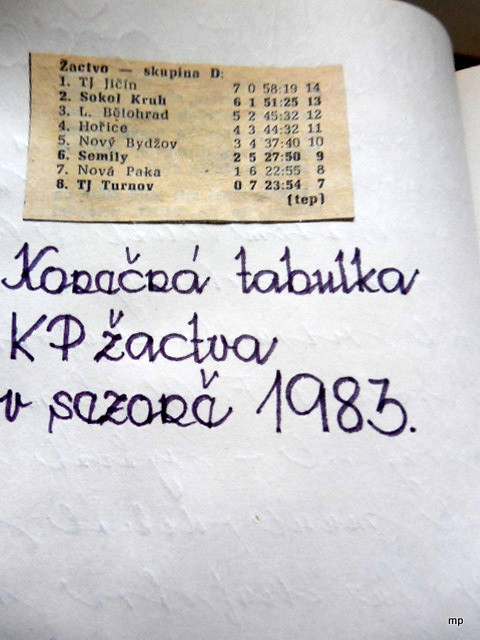 Žactvo — skupina D:
1. TJ Jičín 7 0 58:19 14
2. Sokol Kruh 6 1 51:25 13
3. L. Bělohrad 5 2 45:32 12
4. Hořice 4 3 44:32 11
5. Nový Bydžov 3 4 37:40 10
6. Semily 2 5 27:50 9
7. Nová Paka 1 6 22:55 8
8. TJ Turnov 0 7 23:54 7
(tep)
Konačná tabulka
KP žactva
v sezoně 1983.
mp